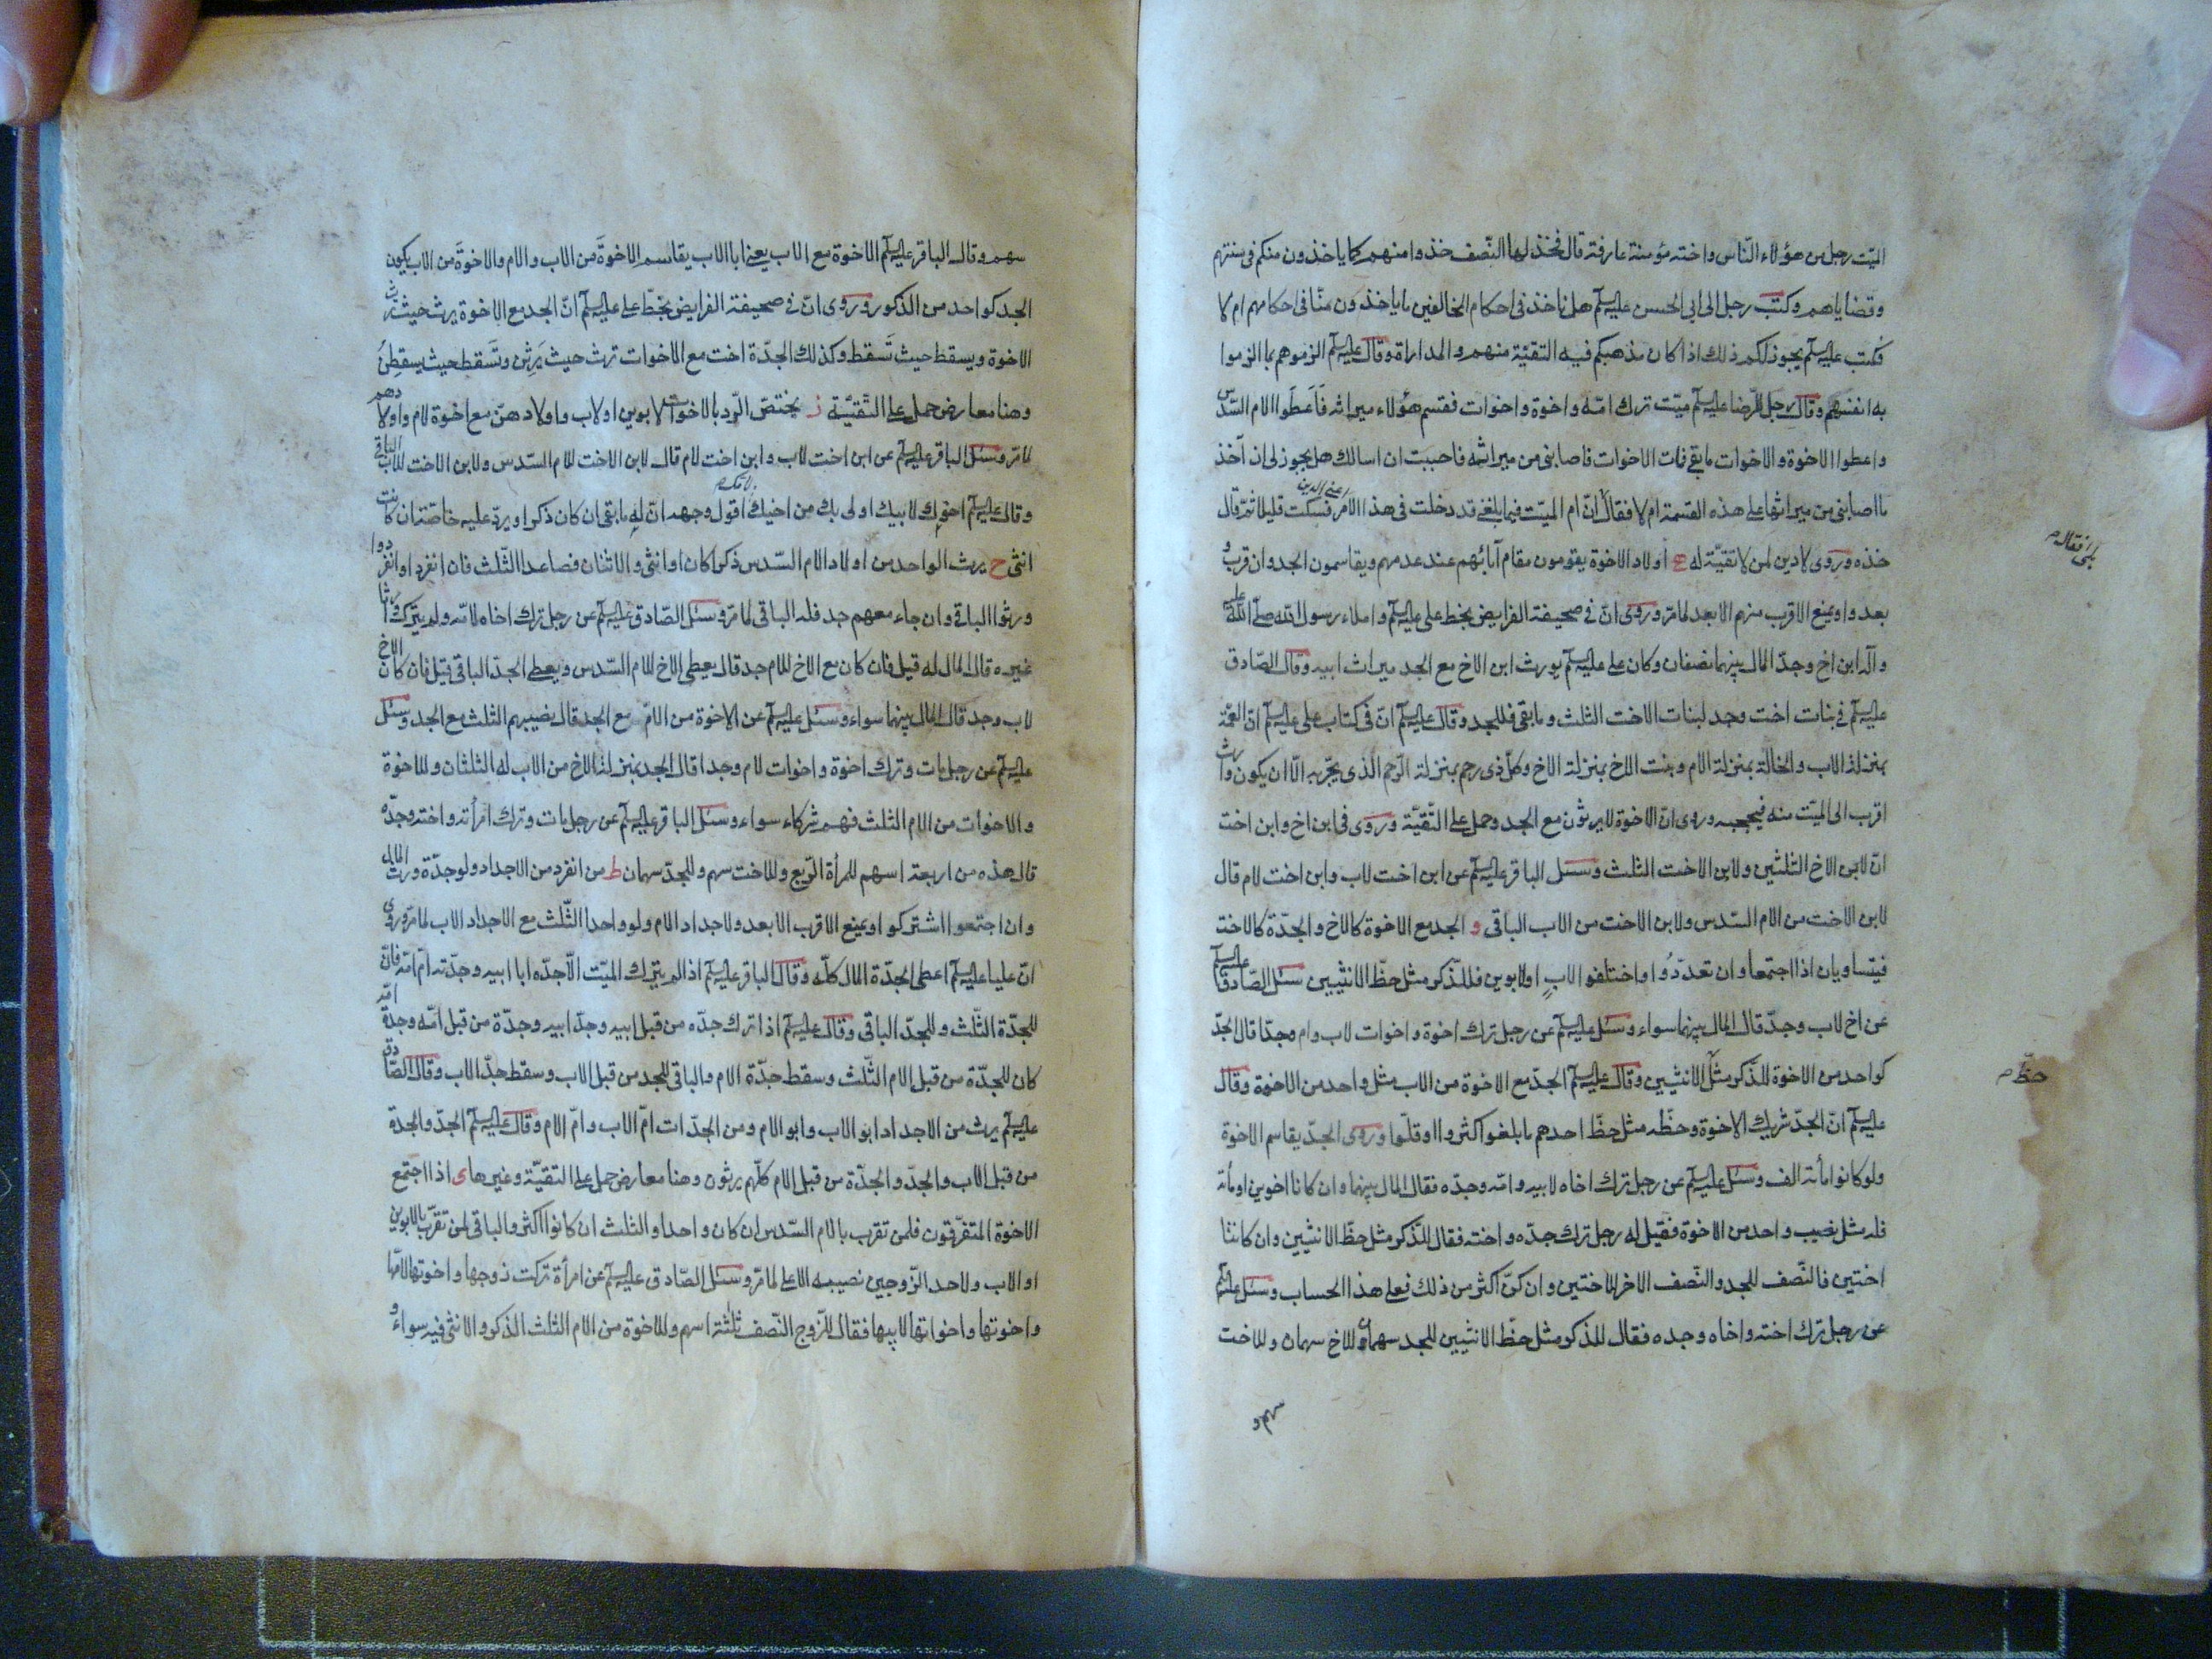 الميّت رجل من هؤلاء النّاس واخته مؤمنة عارفة قال فخذ لها النّصف خذوا منهم كما ياخذون منكم فى سنتهم
وقضاياهم وكتب رجل الى ابى الحسن عليه السلم هل ناخذ فى احكام المخالفين ما ياخذون منّا فى احكامهم ام لا
فكتب عليه السلم يجوز لكم ذلك اذا كان مذهبكم فيه التقيّة منهم والمداراة وقال عليه السلم الزموهم بما الزموا
به انفسهم وقال رجل للرّضا عليه السلم ميّت ترك امّه واخوة واخوات فقسم هؤلاء ميراثه فاعطوا الام السّدس
واعطوا الاخوة والاخوات ما بقى فمات الاخوات فاصابنى من ميراثه فاحببت ان اسالك هل يجوز لى ان آخذ
ما اصابنى من ميراثها على هذه القسمة ام لا فقال انّ ام الميّت فيما بلغنى قد دخلت فى هذا الامر اعنى الدين فسكت قليلا ثمّ قال
بلى فقال
خذه وروى لا دين لمن لا تقيّة له ه اولاد الاخوة يقومون مقام آبائهم عند عدمهم ويقاسمون الجد وان قرب و
بعدوا ويمنع الاقرب منهم الابعد لما مرّ وروى انّ فى صحيفة الفرايض بخط على عليه السلم واملاء رسول الله صلّى الله عليه
وآله ابن اخ وجدّ المال بينهما نصفان وكان على عليه السلم يورث ابن الاخ مع الجد ميراث ابيه وقال الصّادق
عليه السلم فى بنات اخت وجد لبنات الاخت الثلث وما بقى فللجد وقال عليه السلم انّ فى كتاب على عليه السلم انّ العمّة
بمنزلة الاب والخالة بمنزلة الام وبنت الاخ بمنزلة الاخ وكلّ ذى رحم بمنزلة الرّحم الّذى يجرّ به الّا ان يكون وارث
اقرب الى الميّت منه فيحجبه وروى انّ الاخوة لا يرثون مع الجد وحمل على التّقيّة وروى فى ابن اخ وابن اخت
انّ لابن الاخ الثلثين ولابن الاخت الثلث وسئل الباقر عليه السلم عن ابن اخت لاب وابن اخت لام قال
لابن الاخت من الام السّدس ولابن الاخت من الاب الباقى و الجد مع الاخوة كالاخ والجدّة كالاخت
فيتساويان اذا اجتمعا وان تعدّدوا واختلفوا لاب او لابوين فللذّكر مثل حظّ الانثيين سئل الصّادق عليه السلم
عن اخ لاب وجدّ قال المال بينهما سواء وسئل عليه السلم عن رجل ترك اخوة واخوات لاب وام وجدّا قال الجدّ
كواحد من الاخوة للذّكر مثل الانثيين وقال عليه السلم الجدّ مع الاخوة من الاب مثل واحد من الاخوة وقال
حظّ
عليه السلم انّ الجدّ شريك الاخوة وحظّه مثل حظّ احدهم ما بلغوا كثروا او قلّوا وروى الجدّ يقاسم الاخوة
ولو كانوا مأئة الف وسئل عليه السلم عن رجل ترك اخاه لابيه وامّه وجدّه فقال المال بينهما وان كانا اخوين او مأئة
فله مثل نصيب واحد من الاخوة فقيل له رجل ترك جدّه واخته فقال للذّكر مثل حظّ الانثيين وان كانتا
اختين فالنّصف للجد والنّصف الاخر للاختين وان كنّ اكثر من ذلك فعلى هذا الحساب وسئل عليه السلم
عن رجل ترك اخته واخاه وجده فقال للذكر مثل حظّ الانثيين للجد سهمان وللاخ سهمان وللاخت
سهم و
سهم وقال الباقر عليه السلم الاخوة مع الاب يعنى ابا الاب يقاسم الاخوة من الاب والام والاخوة من الاب يكون
الجد كواحد من الذكور وروى انّ فى صحيفة الفرايض بخطّ على عليه السلم انّ الجد مع الاخوة يرث حيث ترث
الاخوة ويسقط حيث تسقط وكذلك الجدّة اخت مع الاخوات ترث حيث يرثن وتسقط حيث يسقطن
وهنا معارض حمل على التّقيّة ز يختصّ الرّد بالاخوات لابوين او لاب واولادهنّ مع اخوة لام واولادهم
لما مرّ وسئل الباقر عليه السلم عن ابن اخت لاب وابن اخت لام قال لابن الاخت للام السّدس ولابن الاخت للاب الباقى
وقال عليه السلم اخوك لابيك اولى بك من اخيك لامك اقول وجهه انّ له ما بقى ان كان ذكرا ويردّ عليه خاصّة ان كانت
انثى ح يرث الواحد من اولاد الام السّدس ذكرا كان او انثى والاثنان فصاعدا الثّلث فان انفرد او انفردوا
ورثوا الباقى وان جاء معهم جد فله الباقى لما مرّ وسئل الصّادق عليه السلم عن رجل ترك اخاه لامّه ولم يترك وارثا
غيره قال المال له قيل فان كان مع الاخ للام جد قال يعطى الاخ للام السّدس ويعطى الجدّ الباقى قيل فان كان الاخ
لاب وجد قال المال بينهما سواء وسئل عليه السلم عن الاخوة من الامّ مع الجد قال نصيبهم الثلث مع الجد وسئل
عليه السلم عن رجل مات وترك اخوة واخوات لام وجدا قال الجد بمنزلة الاخ من الاب له الثلثان وللاخوة
والاخوات من الام الثلث فهم شركاء سواء وسئل الباقر عليه السلم عن رجل مات وترك امرأته واخته وجدّه
قال هذه من اربعة اسهم للمرأة الرّبع وللاخت سهم وللجدّ سهمان ط من انفرد من الاجداد ولو جدّة ورث المال
وان اجتمعوا اشتركوا ويمنع الاقرب الابعد ولاجداد الام ولو واحدا الثّلث مع الاجداد الاب لما مرّ وروى
انّ عليا عليه السلم اعطى الجدّة المال كلّه وقال الباقر عليه السلم اذا لم يترك الميّت الّا جدّه ابا ابيه وجدّته امّ امّه فانّ
للجدّة الثّلث وللجدّ الباقى وقال عليه السلم اذا ترك جدّه من قبل ابيه وجدّ ابيه وجدّة من قبل امّه وجدّة امّه
كان للجدّة من قبل الام الثّلث وسقط جدّة الام والباقى للجد من قبل الاب وسقط جدّ الاب وقال الصّادق
عليه السلم يرث من الاجداد ابو الاب وابو الام ومن الجدّات امّ الاب وامّ الام وقال عليه السلم الجدّ والجدّة
من قبل الاب والجدّ والجدّة من قبل الام كلّهم يرثون وهنا معارض حمل على التقيّة وغيرها ى اذا اجتمع
الاخوة المتفرّقون فلمن تقرّب بالام السّدس ان كان واحدا والثلث ان كانوا اكثر والباقى لمن تقرّب بالابوين
او الاب ولاحد الزّوجين نصيبه الاعلى لما مرّ وسئل الصّادق عليه السلم عن امرأة تركت زوجها واخوتها لامّها
واخوتها واخواتها لابيها فقال للزّوج النّصف ثلثة اسهم وللاخوة من الام الثلث الذكر والانثى فيه سواء و